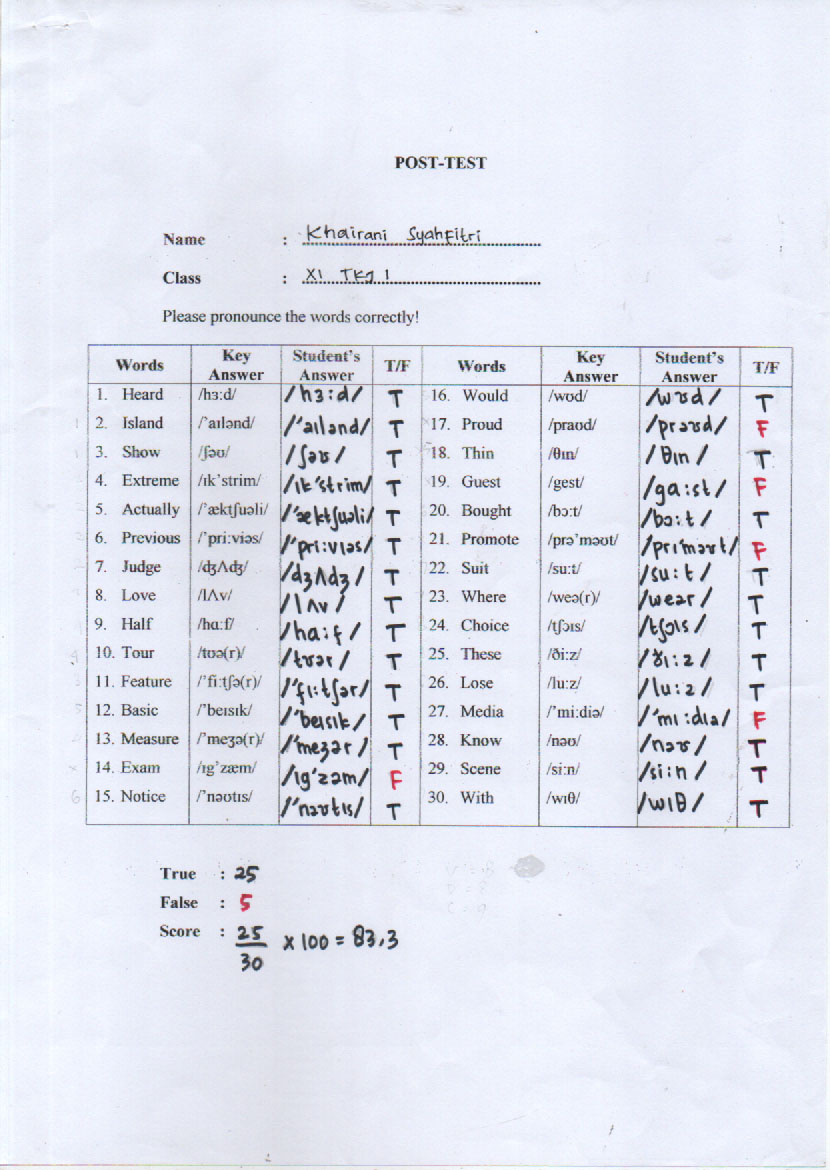 POST-TEST
Name : Khairani Syahfitri
Class : XI TKJ 1
Please pronounce the words correctly!
Words Key Answer Student's Answer T/F Words Key Answer Student's Answer T/F
1. Heard /hɜ:d/ /hɜ:d/ T 16. Would /wʊd/ /wʊd/ T
2. Island /'aɪlənd/ /'aɪlənd/ T 17. Proud /praʊd/ /prəʊd/ F
3. Show /ʃəʊ/ /ʃəʊ/ T 18. Thin /θɪn/ /θɪn/ T
4. Extreme /ɪk'strim/ /ɪk'strim/ T 19. Guest /gest/ /ga:st/ F
5. Actually /'æktʃuəli/ /'æktʃuəli/ T 20. Bought /bɔ:t/ /bɔ:t/ T
6. Previous /'pri:viəs/ /'pri:vɪəs/ T 21. Promote /prə'məʊt/ /pri'məʊt/ F
7. Judge /dʒɅdʒ/ /dʒɅdʒ/ T 22. Suit /su:t/ /su:t/ T
8. Love /lɅv/ /lɅv/ T 23. Where /weə(r)/ /weər/ T
9. Half /hɑ:f/ /ha:f/ T 24. Choice /tʃɔɪs/ /tʃɔɪs/ T
10. Tour /tʊə(r)/ /tʊər/ T 25. These /ði:z/ /ðɪ:z/ T
11. Feature /'fi:tʃə(r)/ /'fɪ:tʃər/ T 26. Lose /lu:z/ /lu:z/ T
12. Basic /'beɪsɪk/ /'beɪsɪk/ T 27. Media /'mi:diə/ /'mɪ:dɪa/ F
13. Measure /'meʒə(r)/ /'meʒər/ T 28. Know /nəʊ/ /nəʊ/ T
14. Exam /ɪg'zæm/ /ɪg'zəm/ F 29. Scene /si:n/ /si:n/ T
15. Notice /'nəʊtɪs/ /'nəʊtɪs/ T 30. With /wɪθ/ /wɪθ/ T
True : 25
False : 5
Score : 25/30 x 100 = 83,3